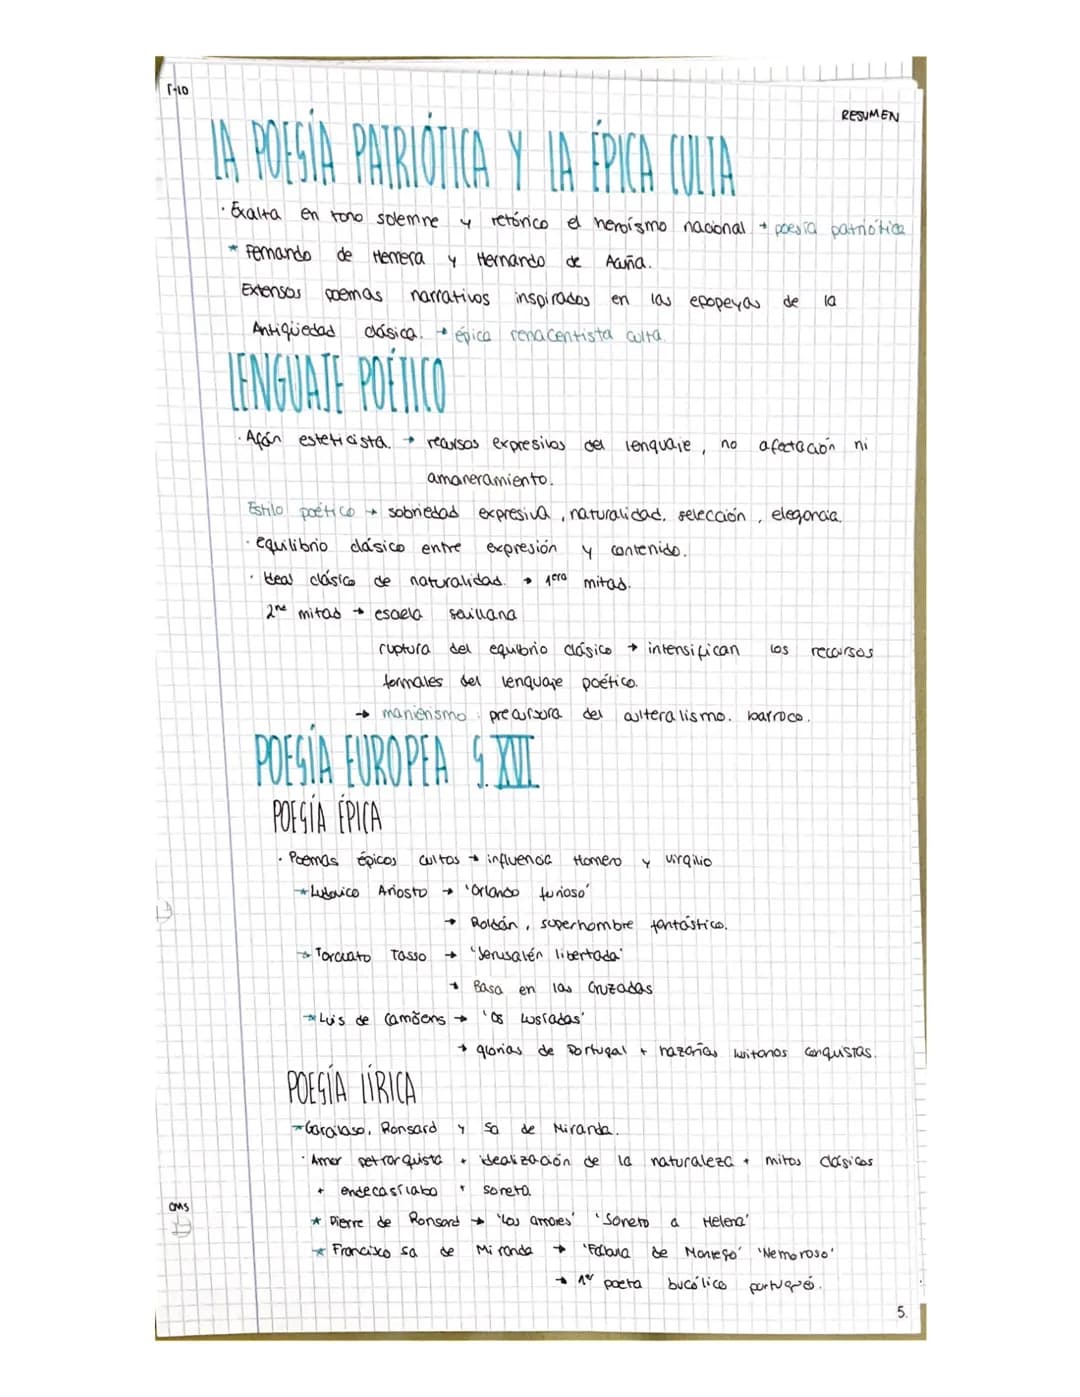 T-10
RESUMEN
LA POESÍA PATRIÓTICA Y LA ÉPICA CULTA
· Exalta en tono solemne y retórico el heroísmo nacional → poesía patriótica
* Fernando de Herrera y Hernando de Acuña.
Extensos poemas narrativos inspirados en las epopeyas de la
Antigüedad clásica. → épica renacentista culta.
LENGUAJE POÉTICO
· Afán esteticista. → recursos expresivos del lenguaje, no afectación ni
amaneramiento.
Estilo poético → sobriedad expresiva, naturalidad, selección, elegancia.
· equilibrio clásico entre expresión y contenido.
· Ideal clásico de naturalidad. → 1era mitad.
2na mitad → escuela sevillana
ruptura del equilibrio clásico → intensifican los recursos
formales del lenguaje poético.
→ manierismo : precursora del culteralismo. barroco.
POESÍA EUROPEA S. XVI
POESÍA ÉPICA
· Poemas épicos cultos → influencia Homero y Virgilio
* Ludovico Ariosto → 'Orlando furioso'
→ Roldán, superhombre fantástico.
* Torcuato Tasso → 'Jerusalén libertada'
→ Basa en las Cruzadas
* Luis de Camõens → 'Os Lusíadas'
→ glorias de Portugal + hazañas lusitanos conquistas.
POESÍA LÍRICA
* Garcilaso, Ronsard y Sa de Miranda.
· Amor petrarquista + idealización de la naturaleza + mitos clásicos
+ endecasílabo + soneto.
* Pierre de Ronsard → 'Los amores' 'Soneto a Helena'
* Francisco Sa de Miranda → 'Fábula de Mondego' 'Nemoroso'
→ 1er poeta bucólico portugués.
OMS
5.